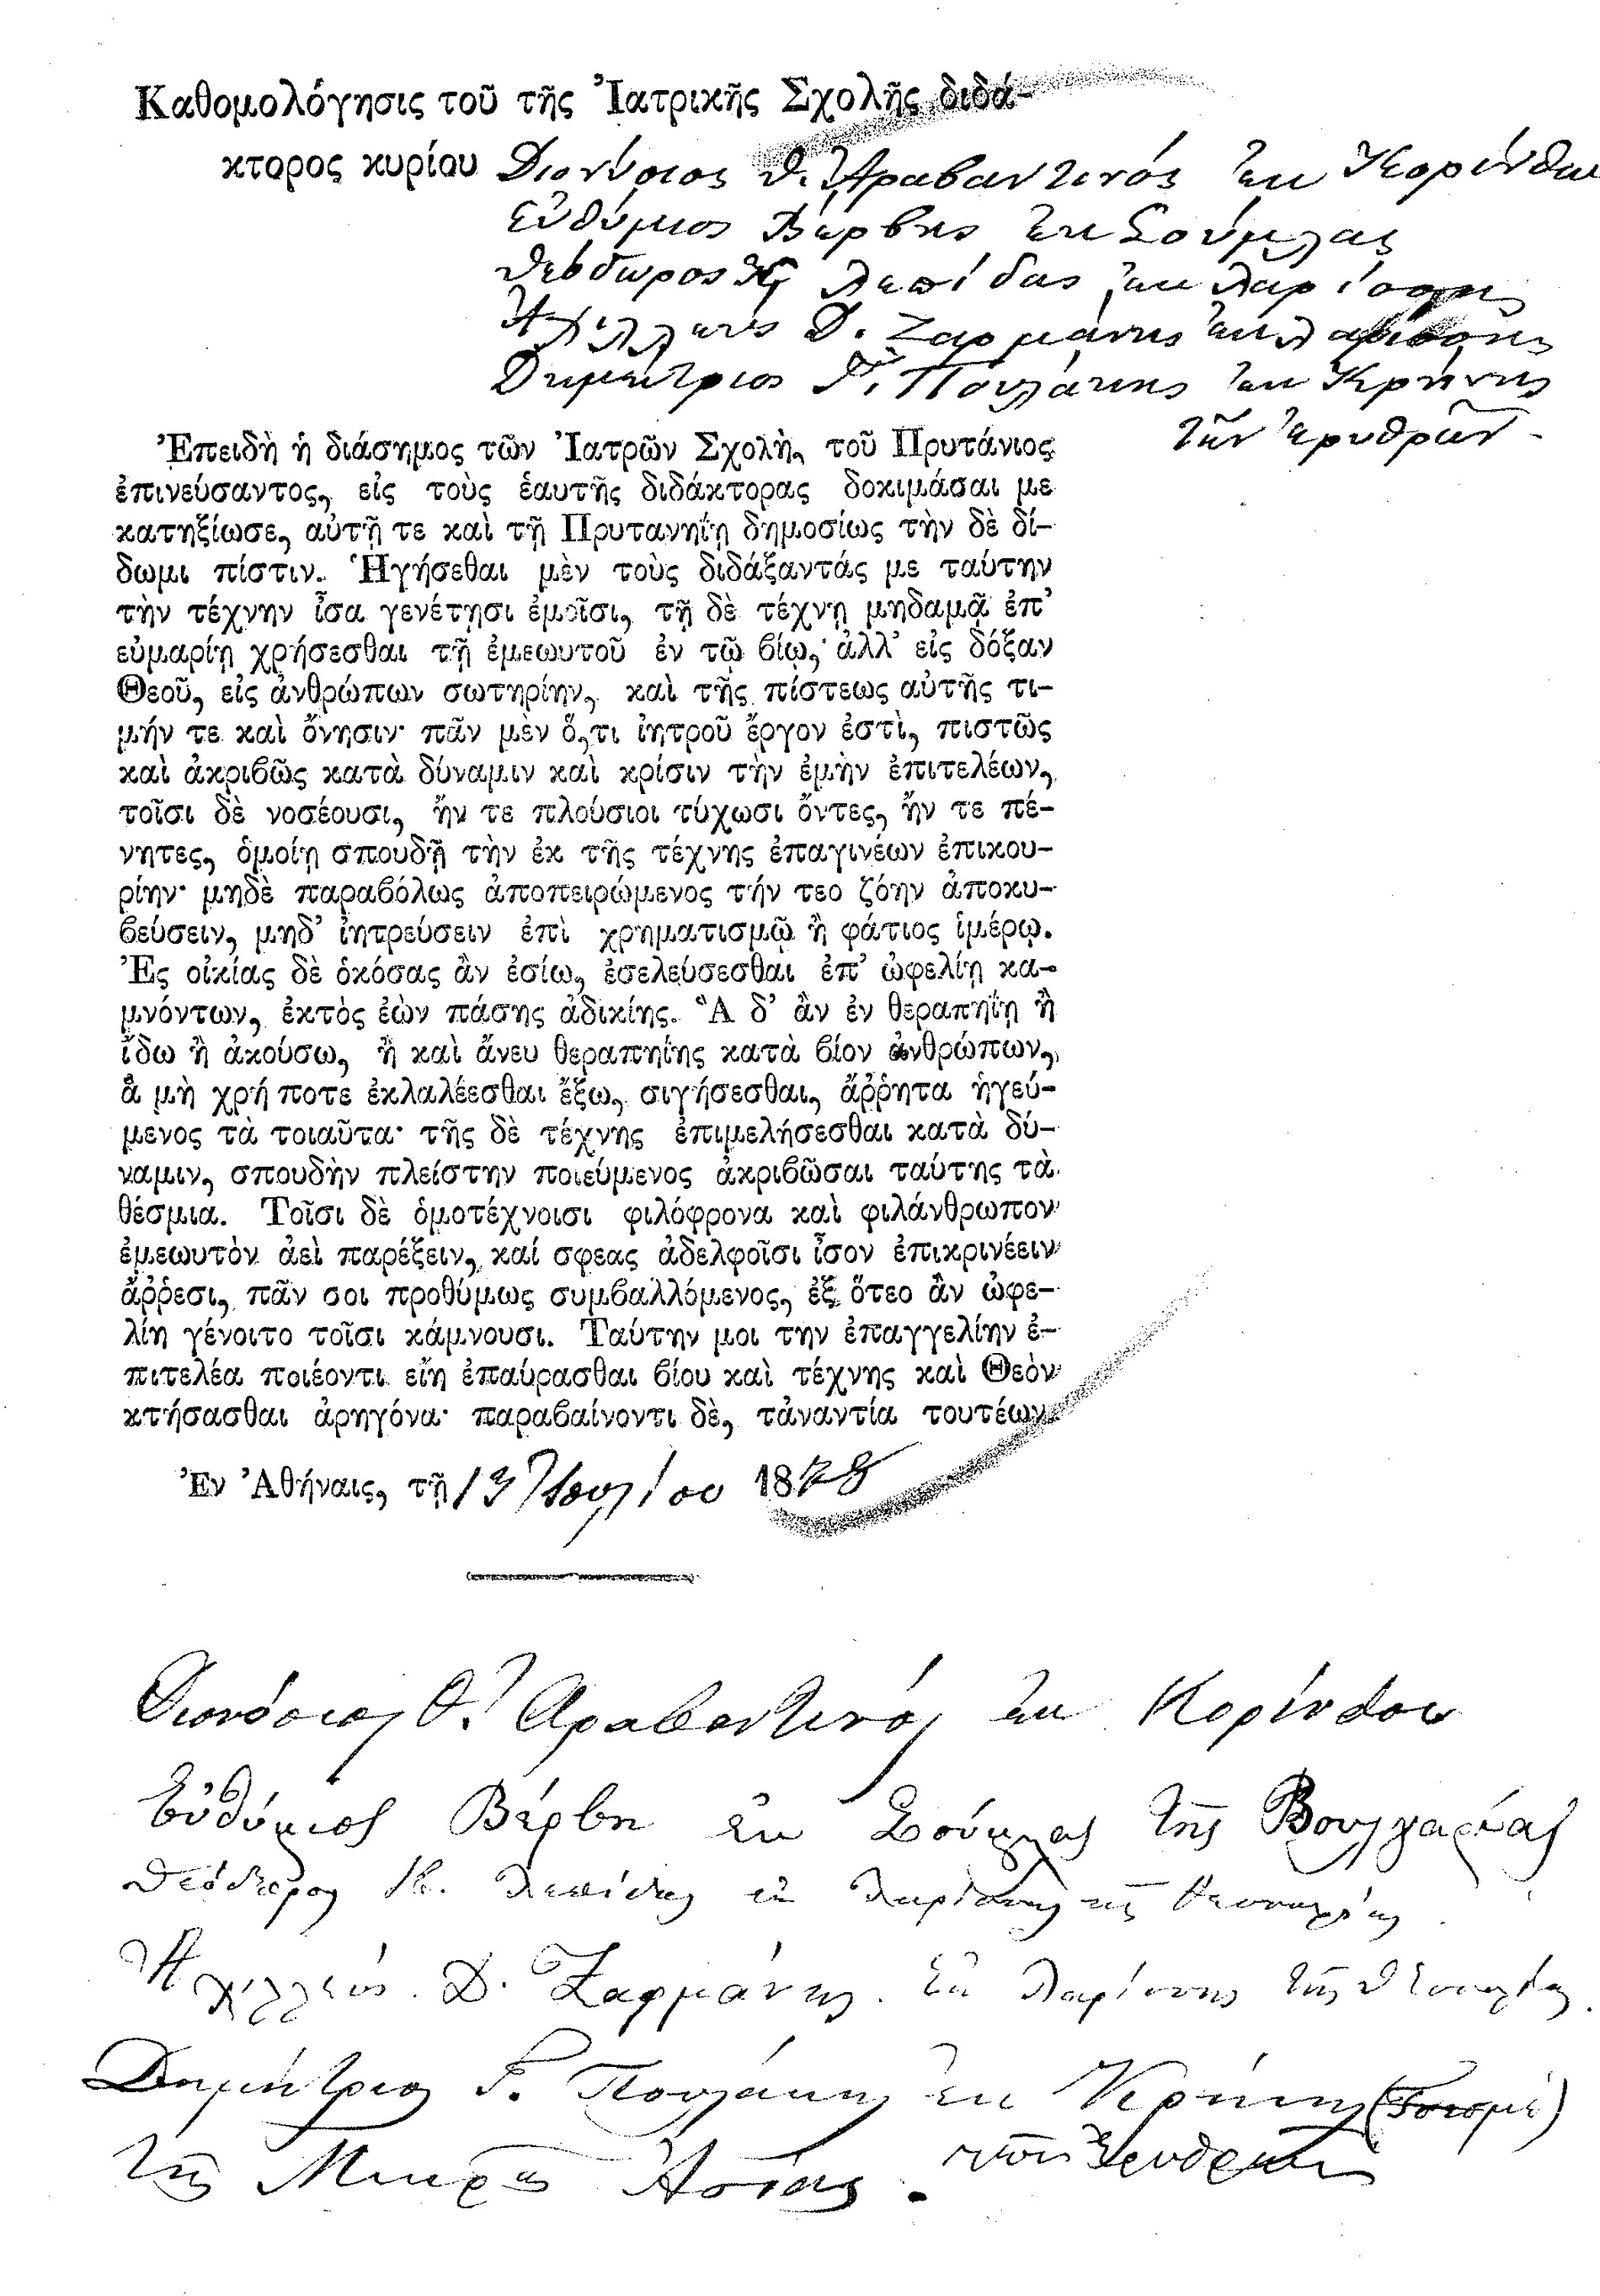 Καθομολόγησις τοῦ τῆς Ἰατρικῆς Σχολῆς διδά-
κτορος κυρίου Διονύσιος Θ. Ἀραβαντινός ἐκ Κορίνθου
Εὐθύμιος Βέρβης ἐκ Σούμλας
Θεόδωρος Κ. Λεπίδας ἐκ Λαρίσσης
Ἀχιλλεύς Δ. Ζαρμάνης ἐκ Λαρίσσης
Δημήτριος Γ. Πουλάκης ἐκ Κρήνης
τῶν Ἐρυθρῶν
Ἐπειδὴ ἡ διάσημος τῶν Ἰατρῶν Σχολὴ, τοῦ Πρυτάνιος
ἐπινεύσαντος, εἰς τοὺς ἑαυτῆς διδάκτορας δοκιμάσαι με
κατηξίωσε, αὐτῇ τε καὶ τῇ Πρυτανηΐῃ δημοσίως τὴν δὲ δί-
δωμι πίστιν. Ἡγήσεθαι μὲν τοὺς διδάξαντάς με ταύτην
τὴν τέχνην ἶσα γενέτῃσι ἐμοῖσι, τῇ δὲ τέχνῃ μηδαμᾷ ἐπ’
εὐμαρίῃ χρήσεσθαι τῇ ἐμεωυτοῦ ἐν τῷ βίῳ, ἀλλ’ εἰς δόξαν
Θεοῦ, εἰς ἀνθρώπων σωτηρίην, καὶ τῆς πίστεως αὐτῆς τι-
μήν τε καὶ ὄνησιν· πᾶν μὲν ὅ,τι ἰητροῦ ἔργον ἐστὶ, πιστῶς
καὶ ἀκριβῶς κατὰ δύναμιν καὶ κρίσιν τὴν ἐμὴν ἐπιτελέων,
τοῖσι δὲ νοσέουσι, ἤν τε πλούσιοι τύχωσι ὄντες, ἤν τε πέ-
νητες, ὁμοίῃ σπουδῇ τὴν ἐκ τῆς τέχνης ἐπαγινέων ἐπικου-
ρίην· μηδὲ παραβόλως ἀποπειρώμενος τήν τεο ζόην ἀποκυ-
βεύσειν, μηδ’ ἰητρεύσειν ἐπὶ χρηματισμῷ ἢ φάτιος ἱμέρῳ.
Ἐς οἰκίας δὲ ὁκόσας ἂν ἐσίω, ἐσελεύσεσθαι ἐπ’ ὠφελίῃ κα-
μνόντων, ἐκτὸς ἐὼν πάσης ἀδικίης. Ἃ δ’ ἂν ἐν θεραπηΐῃ ἢ
ἴδω ἢ ἀκούσω, ἢ καὶ ἄνευ θεραπηΐης κατὰ βίον ἀνθρώπων,
ἃ μὴ χρή ποτε ἐκλαλέεσθαι ἔξω, σιγήσεσθαι, ἄῤῥητα ἡγεύ-
μενος τὰ τοιαῦτα· τῆς δὲ τέχνης ἐπιμελήσεσθαι κατὰ δύ-
ναμιν, σπουδὴν πλείστην ποιεύμενος ἀκριβῶσαι ταύτης τὰ
θέσμια. Τοῖσι δὲ ὁμοτέχνοισι φιλόφρονα καὶ φιλάνθρωπον
ἐμεωυτὸν ἀεὶ παρέξειν, καί σφεας ἀδελφοῖσι ἶσον ἐπικρινέειν
ἄῤῥεσι, πᾶν σοι προθύμως συμβαλλόμενος, ἐξ ὅτεο ἂν ὠφε-
λίη γένοιτο τοῖσι κάμνουσι. Ταύτην μοι την ἐπαγγελίην ἐ-
πιτελέα ποιέοντι εἴη ἐπαύρασθαι βίου καὶ τέχνης καὶ Θεὸν
κτήσασθαι ἀρηγόνα· παραβαίνοντι δὲ, τἀναντία τουτέων.
Ἐν Ἀθήναις, τῇ 13 Ἰουλίου 1878
Διονύσιος Θ. Ἀραβαντινός ἐκ Κορίνθου
Εὐθύμιος Βέρβη ἐκ Σούμλας τῆς Βουλγαρίας
Θεόδωρος Κ. Λεπίδας ἐκ Λαρίσσης τῆς Θεσσαλίας
Ἀχιλλεύς Δ. Ζαρμάνης. ἐκ Λαρίσσης τῆς Θεσσαλίας.
Δημήτριος Γ. Πουλάκης ἐκ Κρήνης (Τσεσμέ)
τῆς Μικρᾶς Ἀσίας. τῶν Ἐρυθρῶν